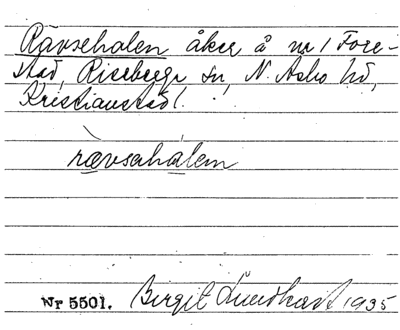 Rävsehalen åker å nr 1 Fore-
stad, Riseberga sn, N. Åsbo hd,
Kristianstad l.
rævsahalem
Nr 5501. Birgit Lundkvist 1935